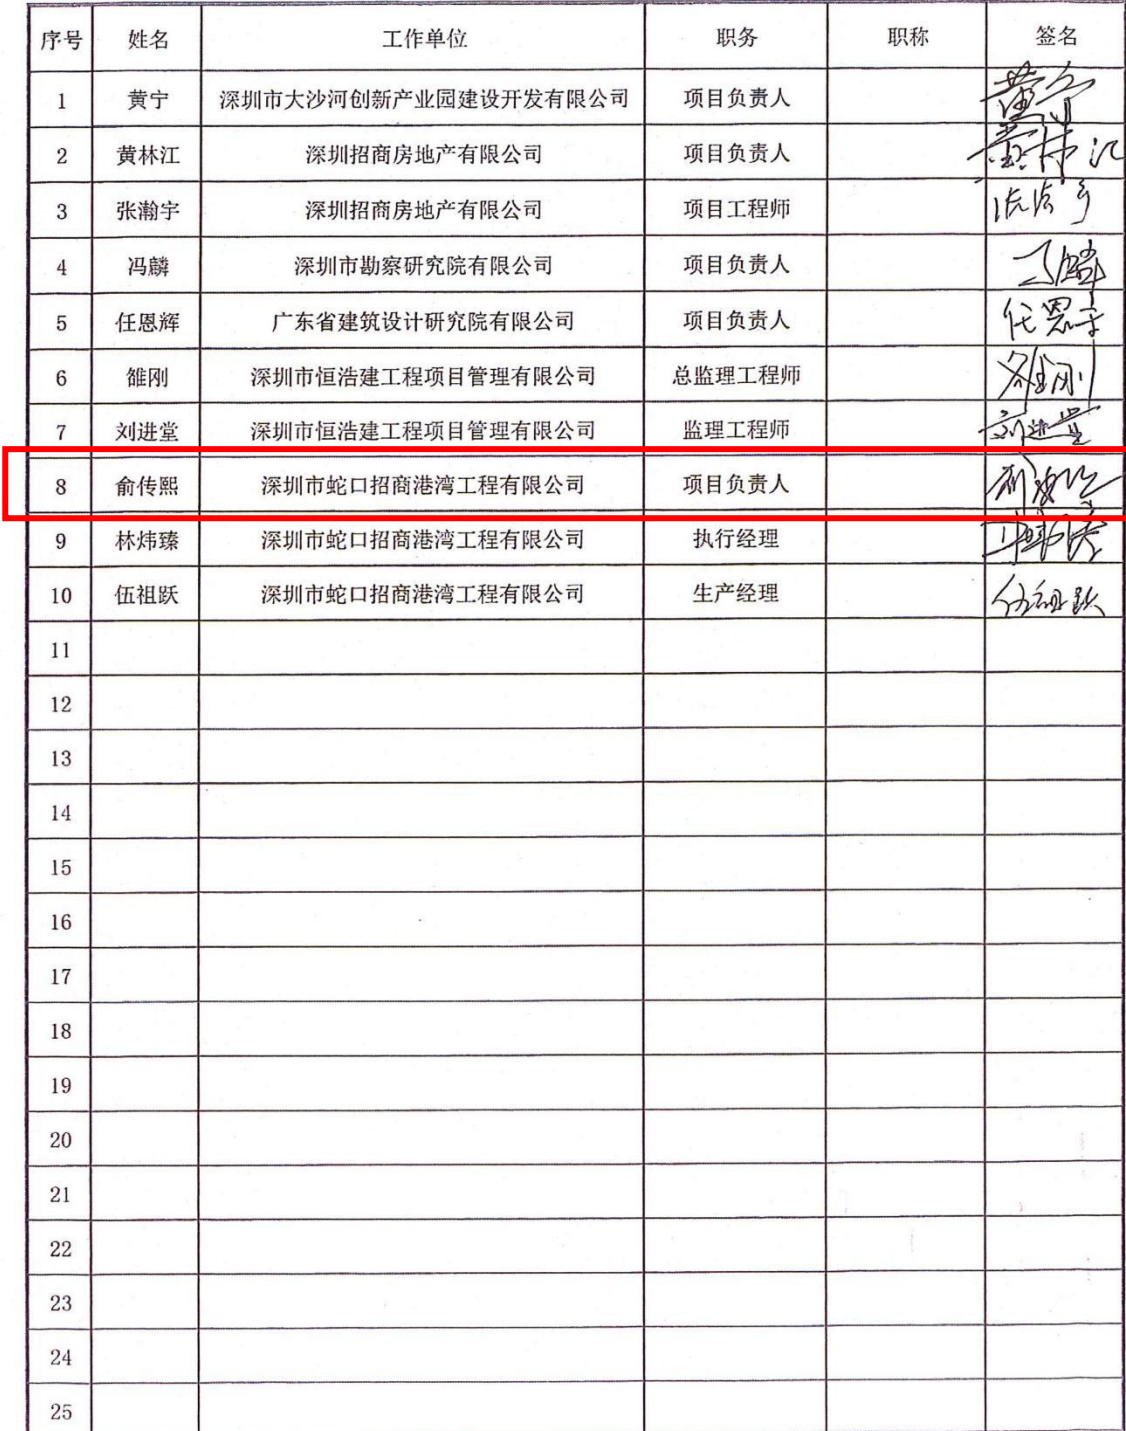 序号 姓名 工作单位 职务 职称 签名
1 黄宁 深圳市大沙河创新产业园建设开发有限公司 项目负责人 黄宁
2 黄林江 深圳招商房地产有限公司 项目负责人 黄林江
3 张瀚宇 深圳招商房地产有限公司 项目工程师
4 冯麟 深圳市勘察研究院有限公司 项目负责人 冯麟
5 任恩辉 广东省建筑设计研究院有限公司 项目负责人 任恩辉
6 雒刚 深圳市恒浩建工程项目管理有限公司 总监理工程师 雒刚
7 刘进堂 深圳市恒浩建工程项目管理有限公司 监理工程师 刘进堂
8 俞传熙 深圳市蛇口招商港湾工程有限公司 项目负责人
9 林炜臻 深圳市蛇口招商港湾工程有限公司 执行经理
10 伍祖跃 深圳市蛇口招商港湾工程有限公司 生产经理 伍祖跃
11
12
13
14
15
16
17
18
19
20
21
22
23
24
25